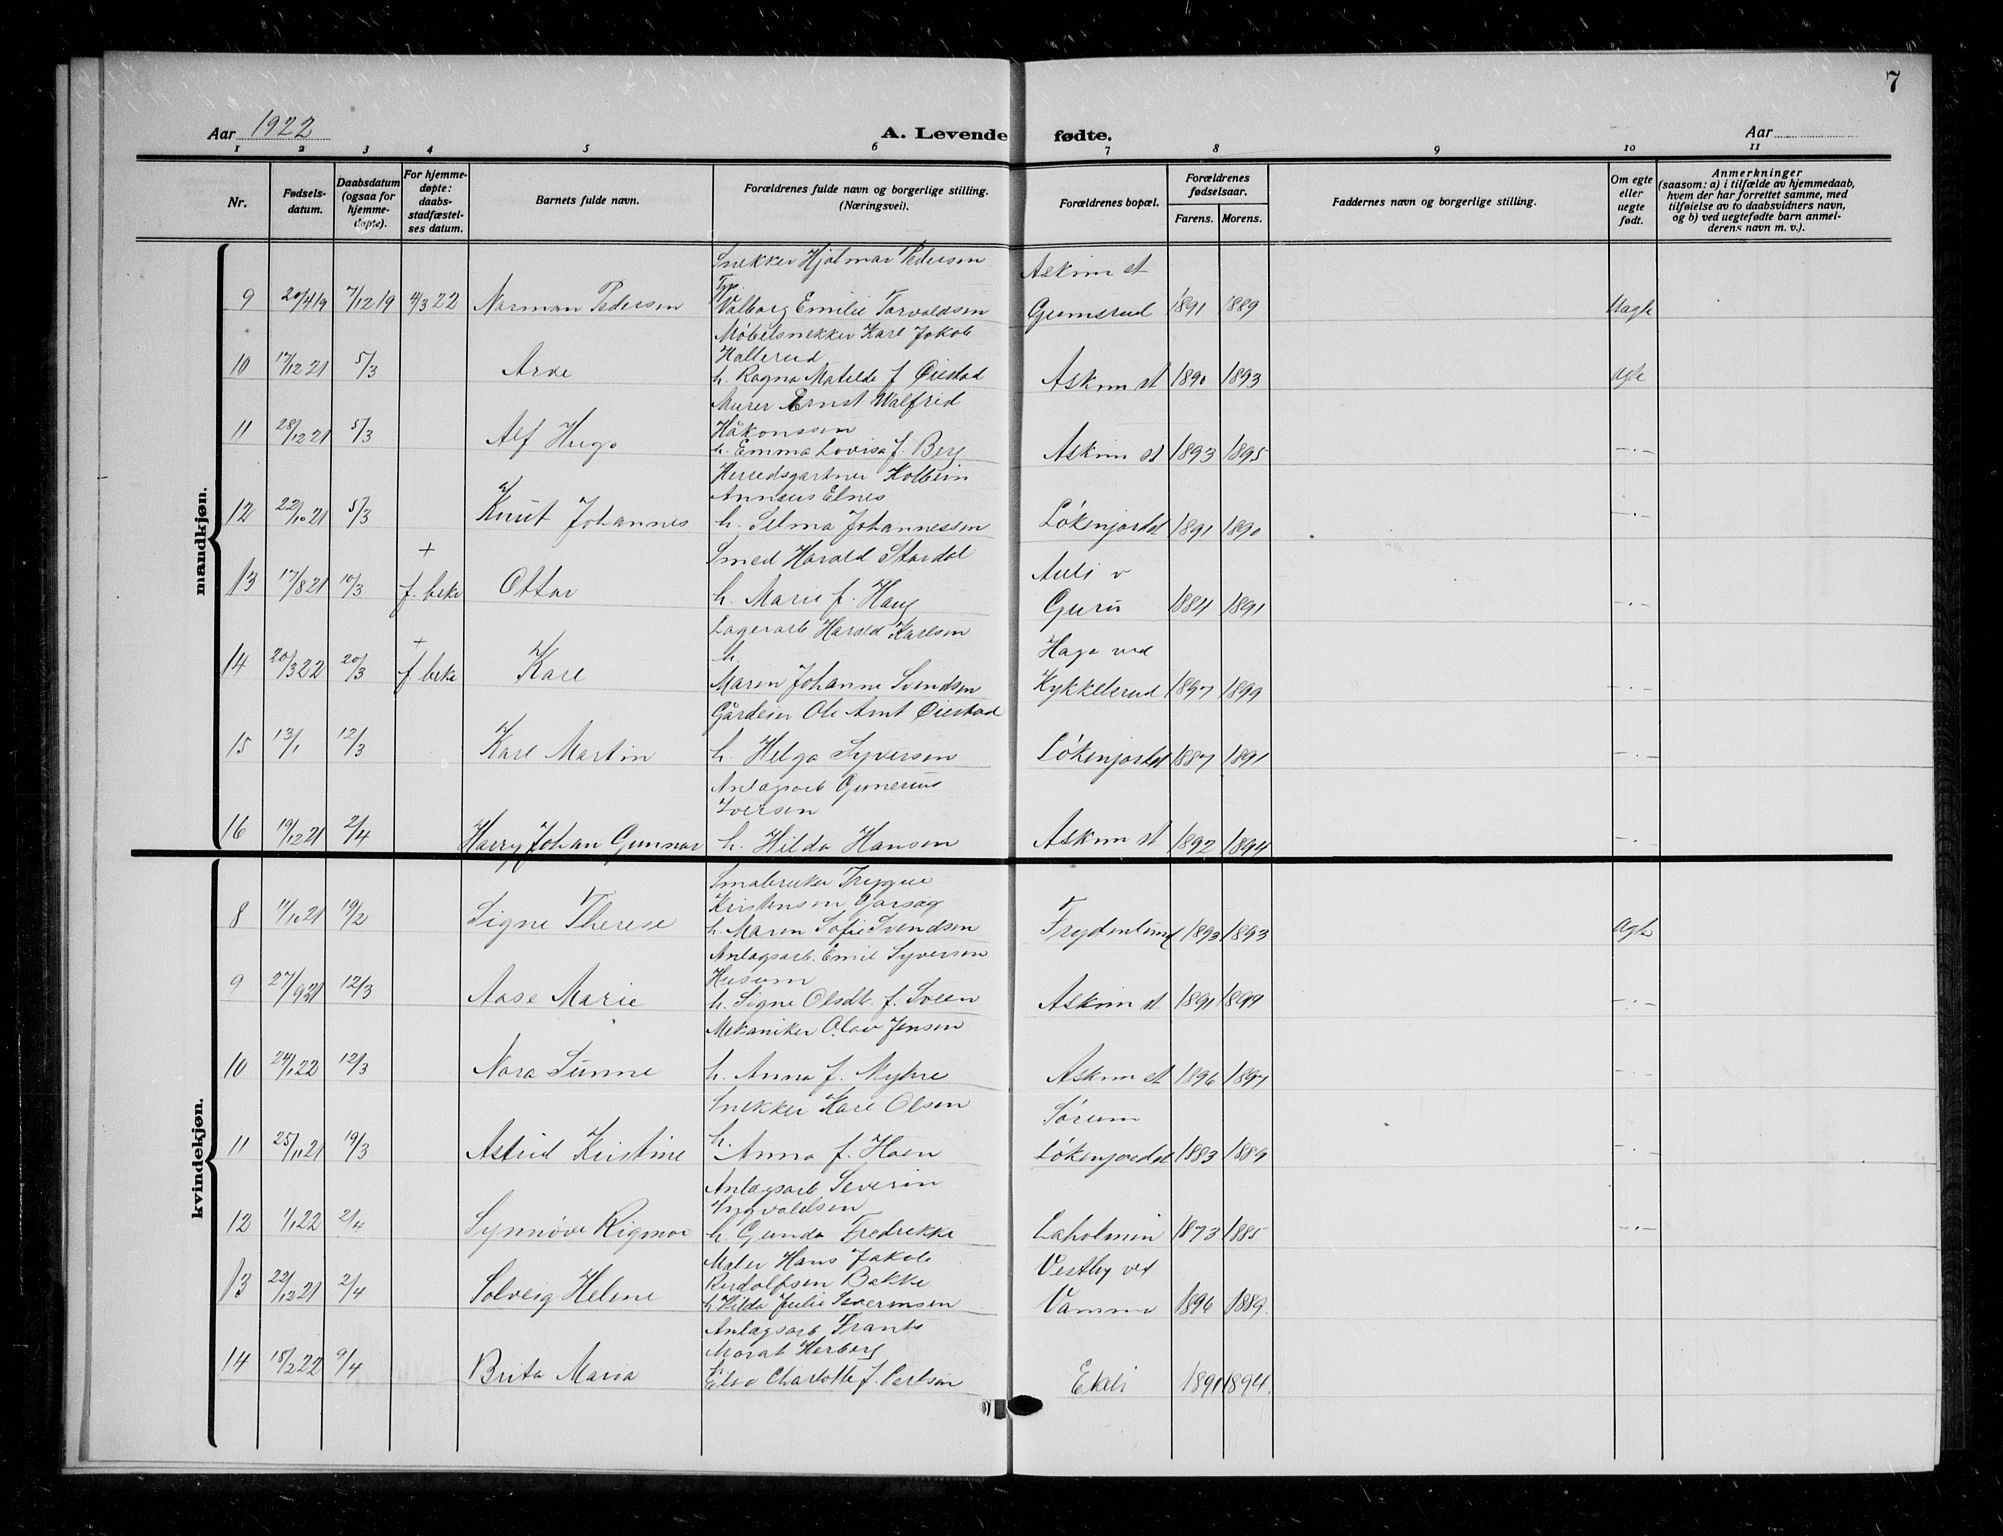 7
Aar 1922
A. Levende fødte.
Aar
1 2 3 4 5 6 7 8 9 10 11
Nr.
Fødsels-
datum.
Daabsdatum
(ogsaa for
hjemme-
døpte).
For hjemme-
døpte:
daabs-
stadfæstel-
ses datum.
Barnets fulde navn.
Forældrenes fulde navn og borgerlige stilling.
(Næringsvei).
Forældrenes bopæl.
Forældrenes
fødselsaar.
Farens. Morens.
Faddernes navn og borgerlige stilling.
Om egte
eller
uegte
født.
Anmerkninger
(saasom: a) i tilfælde av hjemmedaab,
hvem der har forrettet samme, med
tilføielse av to daabsvidners navn,
og b) ved uegtefødte barn anmel-
derens navn m. v.).
mandkjøn.
Snekker Hjalmar Pedersen Askim st
9 20/4 19 7/12 19 4/3 22 Norman Pedersen Valborg Emilie Torvaldsen Grimsrud 1891 1889 Uagte
Møbelsnekker Karl Jakob
Hallerud
10 17/12 21 5/3 Arve h. Ragna Matilde f Øiestad Askim st 1890 1893 Agte
Murer Ernst Walfrid
Håkonssen
11 28/12 21 5/3 Alf Hugo h. Emma Lovisa f. Berg Askim st 1893 1895 -·-
Herredsgartner Kolbein
Annæus Elnes
12 22/10 21 5/3 Knut Johannes h. Selma Johannessen Løkenjordet 1891 1890 -·-
+ Smed Harald Stordal Auli v
13 17/8 21 10/3 f. beke Ottar h. Marie f. Haug Guru 1884 1891 -·-
+ Lagerarb Harald Karlsen Haga ved
14 20/3 22 20/3 f beke Kare h. Maren Johanne Svendsen Kykkelsrud 1897 1899 -·-
Gårdeier Ole Arnt Øiestad
15 13/1 12/3 Karl Martin h. Helga Syversen Løkenjordet 1887 1891 -·-
Anlagsarb Gunerius
Iversen
16 19/12 21 2/4 Harry Johan Gunnar h. Hilda Hansen Askim st 1892 1894 -·-
kvindekjøn.
Smabruker Trygve
Kristensen
8 11/10 21 19/2 Signe Therese h. Maren Sofie Svendsen Frydenlund 1893 1893 Agte
Anlagsarb. Emil Syversen
Husum
9 27/9 21 12/3 Aase Marie h. Signe Olsdt. f. Sveen Askim st 1891 1899 -·-
Mekaniker Olav Jensen
10 24/1 22 12/3 Nora Sunne h. Anna f. Myhre Askim st 1896 1897 -·-
Snekker Karl Olsen Sørum
11 25/11 21 19/3 Astrid Kristine h. Anna f. Hoen Løkenjordet 1883 1889 -·-
Anlagsarb Severin
Syvaldsen
12 1/1 22 2/4 Synnøve Rigmor h. Gunda Fredrikke Laholmen 1873 1885 -·-
Maler Hans Jakob Vestby ved
Rudolfsen Bakke
13 22/12 21 2/4 Solveig Helene h Hilda Julie Severinsen Vamma 1896 1889.
Anlagsarb Frants
Morat Herberg
14 18/2 22 9/4 Brita Maria h. Elsa Charlotte f. Carlson Ekeli 1891 1894.